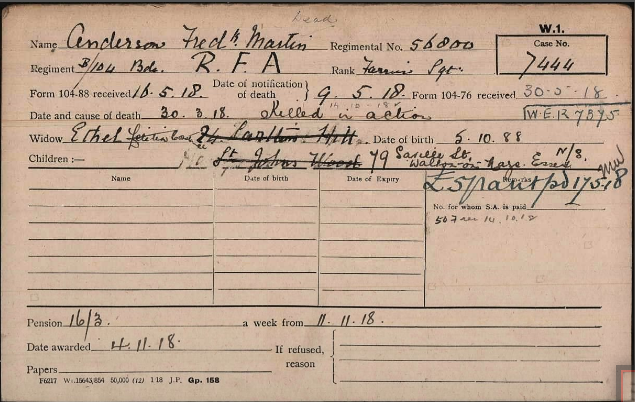 Dead
W.1.
Name Anderson Fredk. Martin Regimental No. 56800 Case No.
7444
Regiment B/104 Bde. R. F. A Rank Farrier Sgt.
Form 104-88 received 10.5.18. Date of notification of death } 9.5.18. Form 104-76 received 30-5-18.
14.10.18
Date and cause of death 30.3.18. Killed in action W.E.R 7575
Widow Ethel Carlton Hill Date of birth 5.10.88
Children :— St. Johns Wood 79 Saville St. Walton-on-Naze Essex N/S.
Name Date of birth Date of Expiry Remarks
£5 grant pd 17518
No. for whom S.A. is paid
507 rec 14.10.18
Pension 16/3 a week from 11.11.18.
Date awarded 4.11.18. If refused, reason
Papers
F6217 Wt.15643/854 50,000 (12) 1 18 J.P. Gp. 158